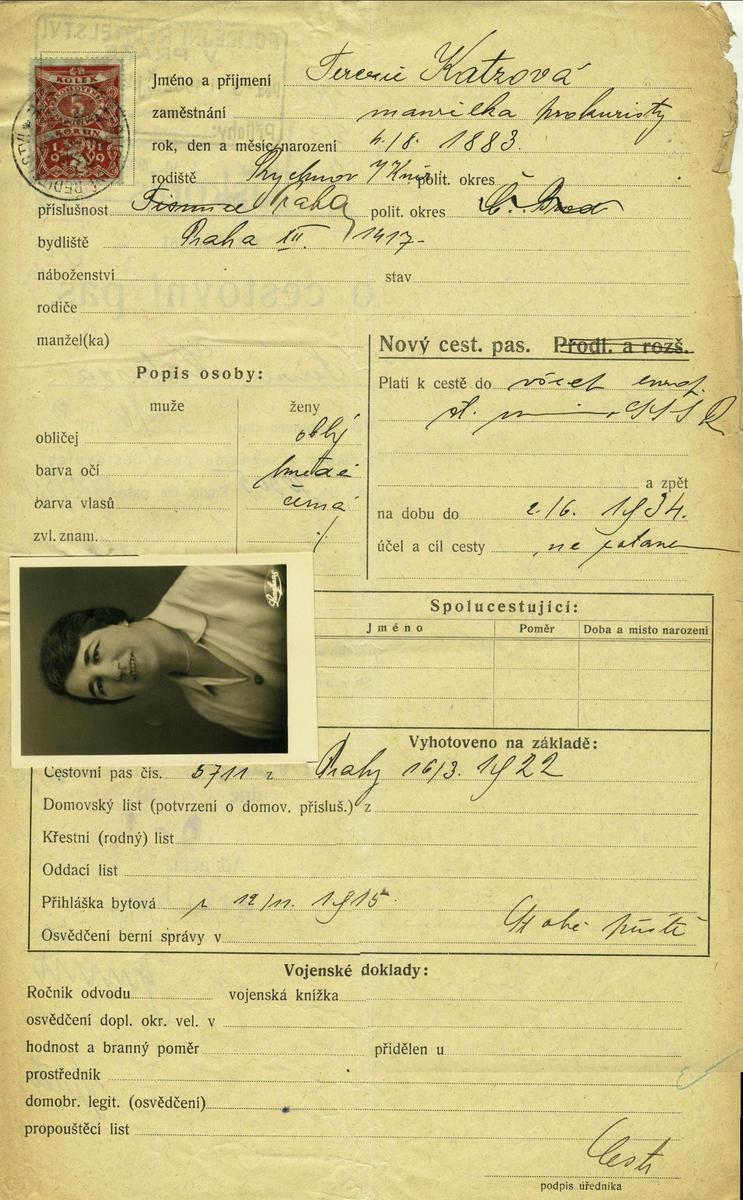 KOLEK
5
KORUN
1919
Jméno a příjmení Terezie Katzová
zaměstnání manželka prokuristy
rok, den a měsíc narození 4./8. 1883.
rodiště Rychnov polit. okres
příslušnost Praha polit. okres Č. Brod
bydliště Praha XII. 1417-
náboženství stav
rodiče
manžel(ka)
Nový cest. pas. Prodl. a rozš.
Popis osoby:
muže ženy
Platí k cestě do všech evrop.
st. SSSR
obličej oblý
barva očí hnědé
a zpět
barva vlasů černá
na dobu do 2./6. 1934.
zvl. znam. ./.
účel a cíl cesty
Spolucestující:
Jméno Poměr Doba a místo narození
Vyhotoveno na základě:
Cestovní pas čís. 5711 z Prahy 16/3. 1922
Domovský list (potvrzení o domov. přísluš.) z
Křestní (rodný) list
Oddací list
Přihláška bytová z 12/11. 1915.
Osvědčení berní správy v
Vojenské doklady:
Ročník odvodu vojenská knížka
osvědčení dopl. okr. vel. v
hodnost a branný poměr přidělen u
prostředník
domobr. legit. (osvědčení)
propouštěcí list
podpis úředníka